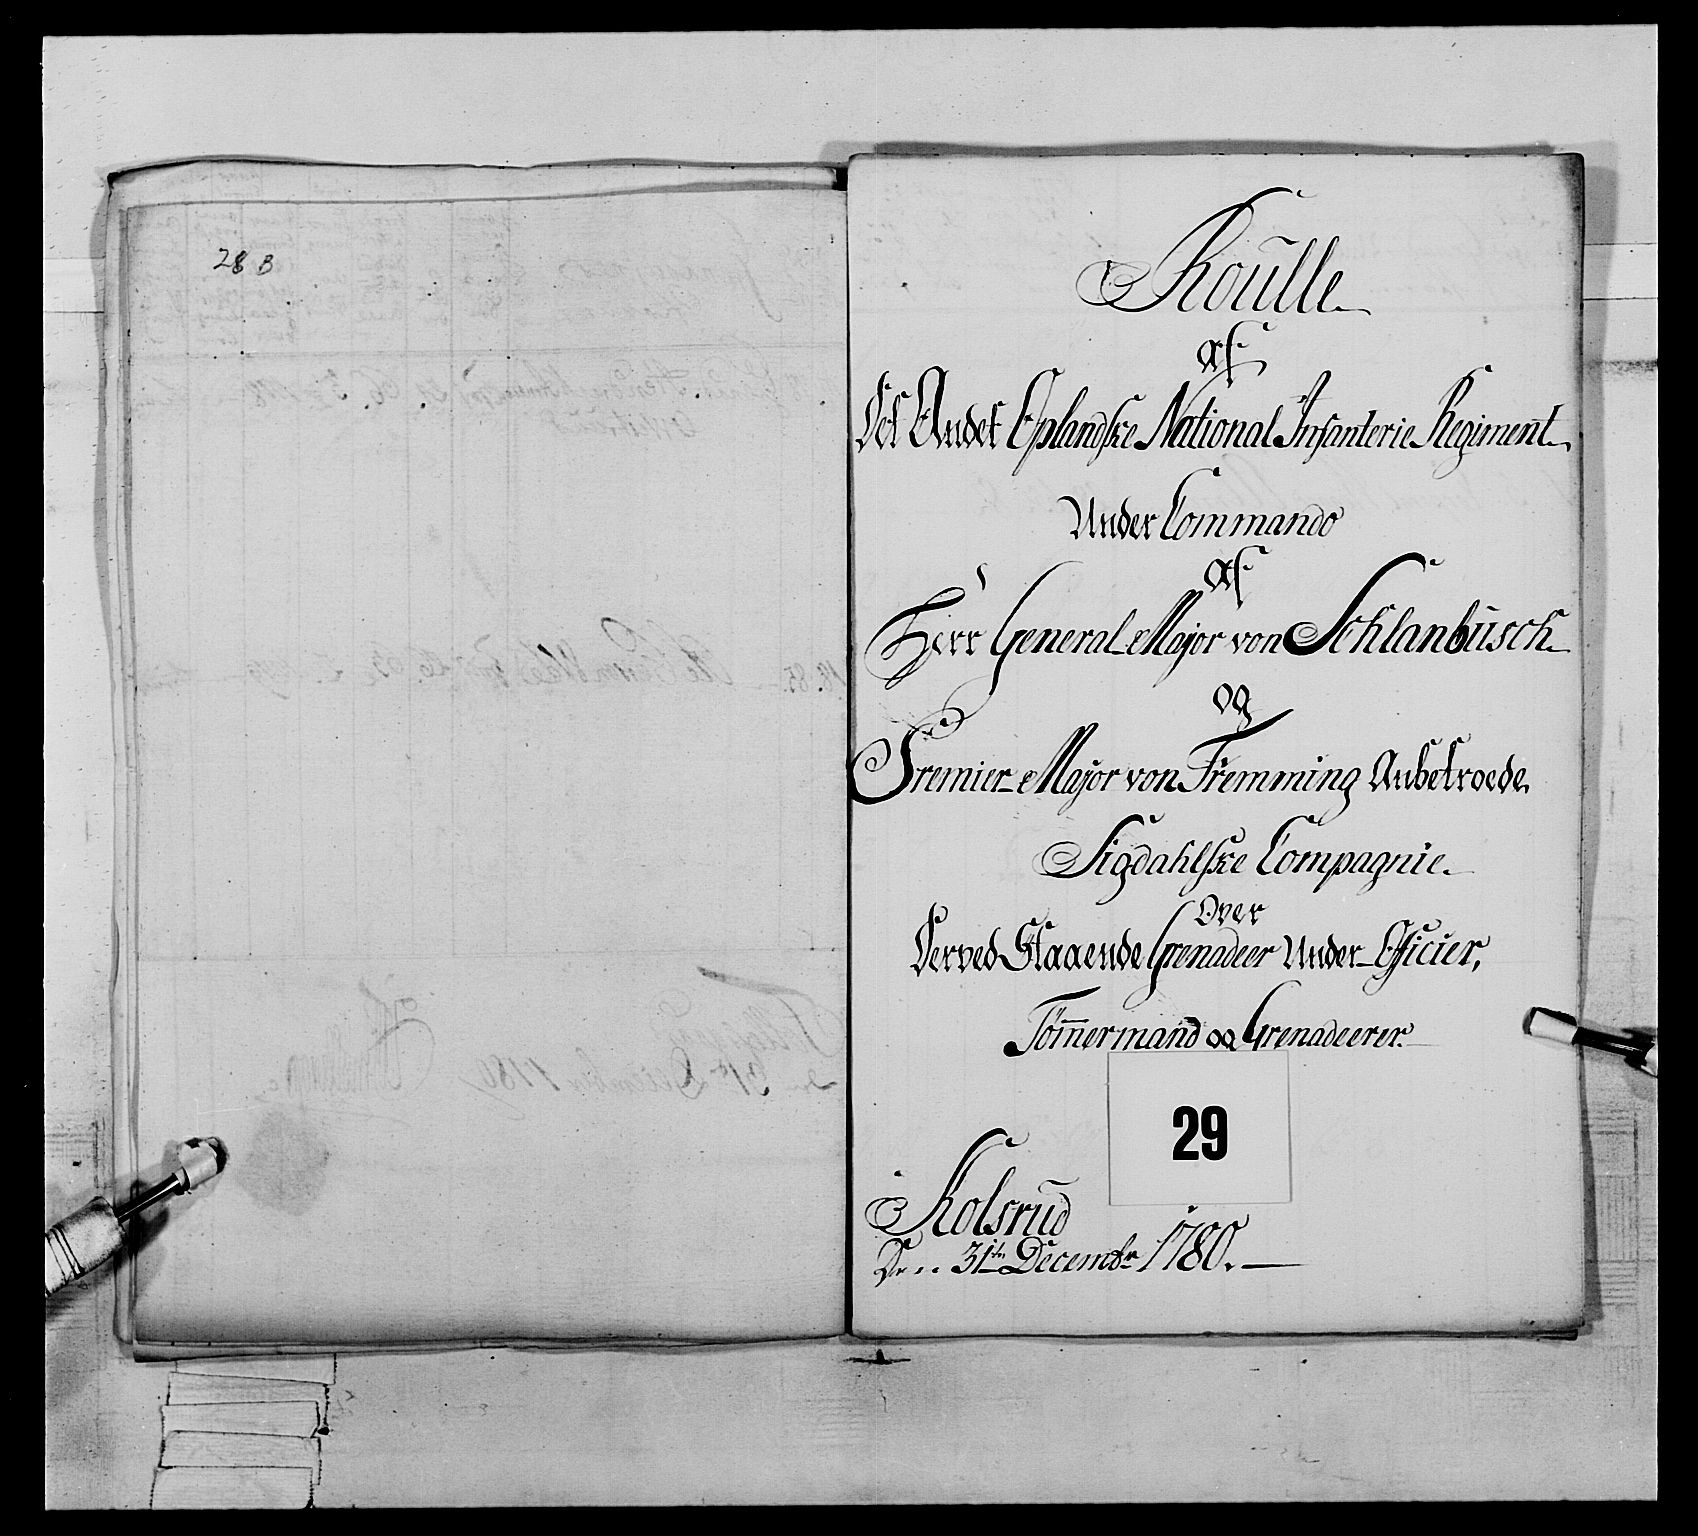 28 B
Roulle
af
Det Andet Oplandske National Infanterie Regiment
Under Commando
af
Herr General Major von Schlanbusch
og
Premier Major von Fremming Anbetroede
Sigdahlske Compagnie.
Over
Derved Staaende Grenadeer Under-Officier,
Tømmermand og Grenadeerer.
29
Kolsrud
De.. 31te Decembr 1780.